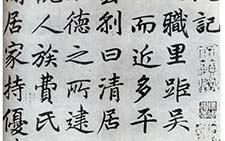 記
職里距吳
而近多平
剎曰清居
德之所建
人族費民
居家持優